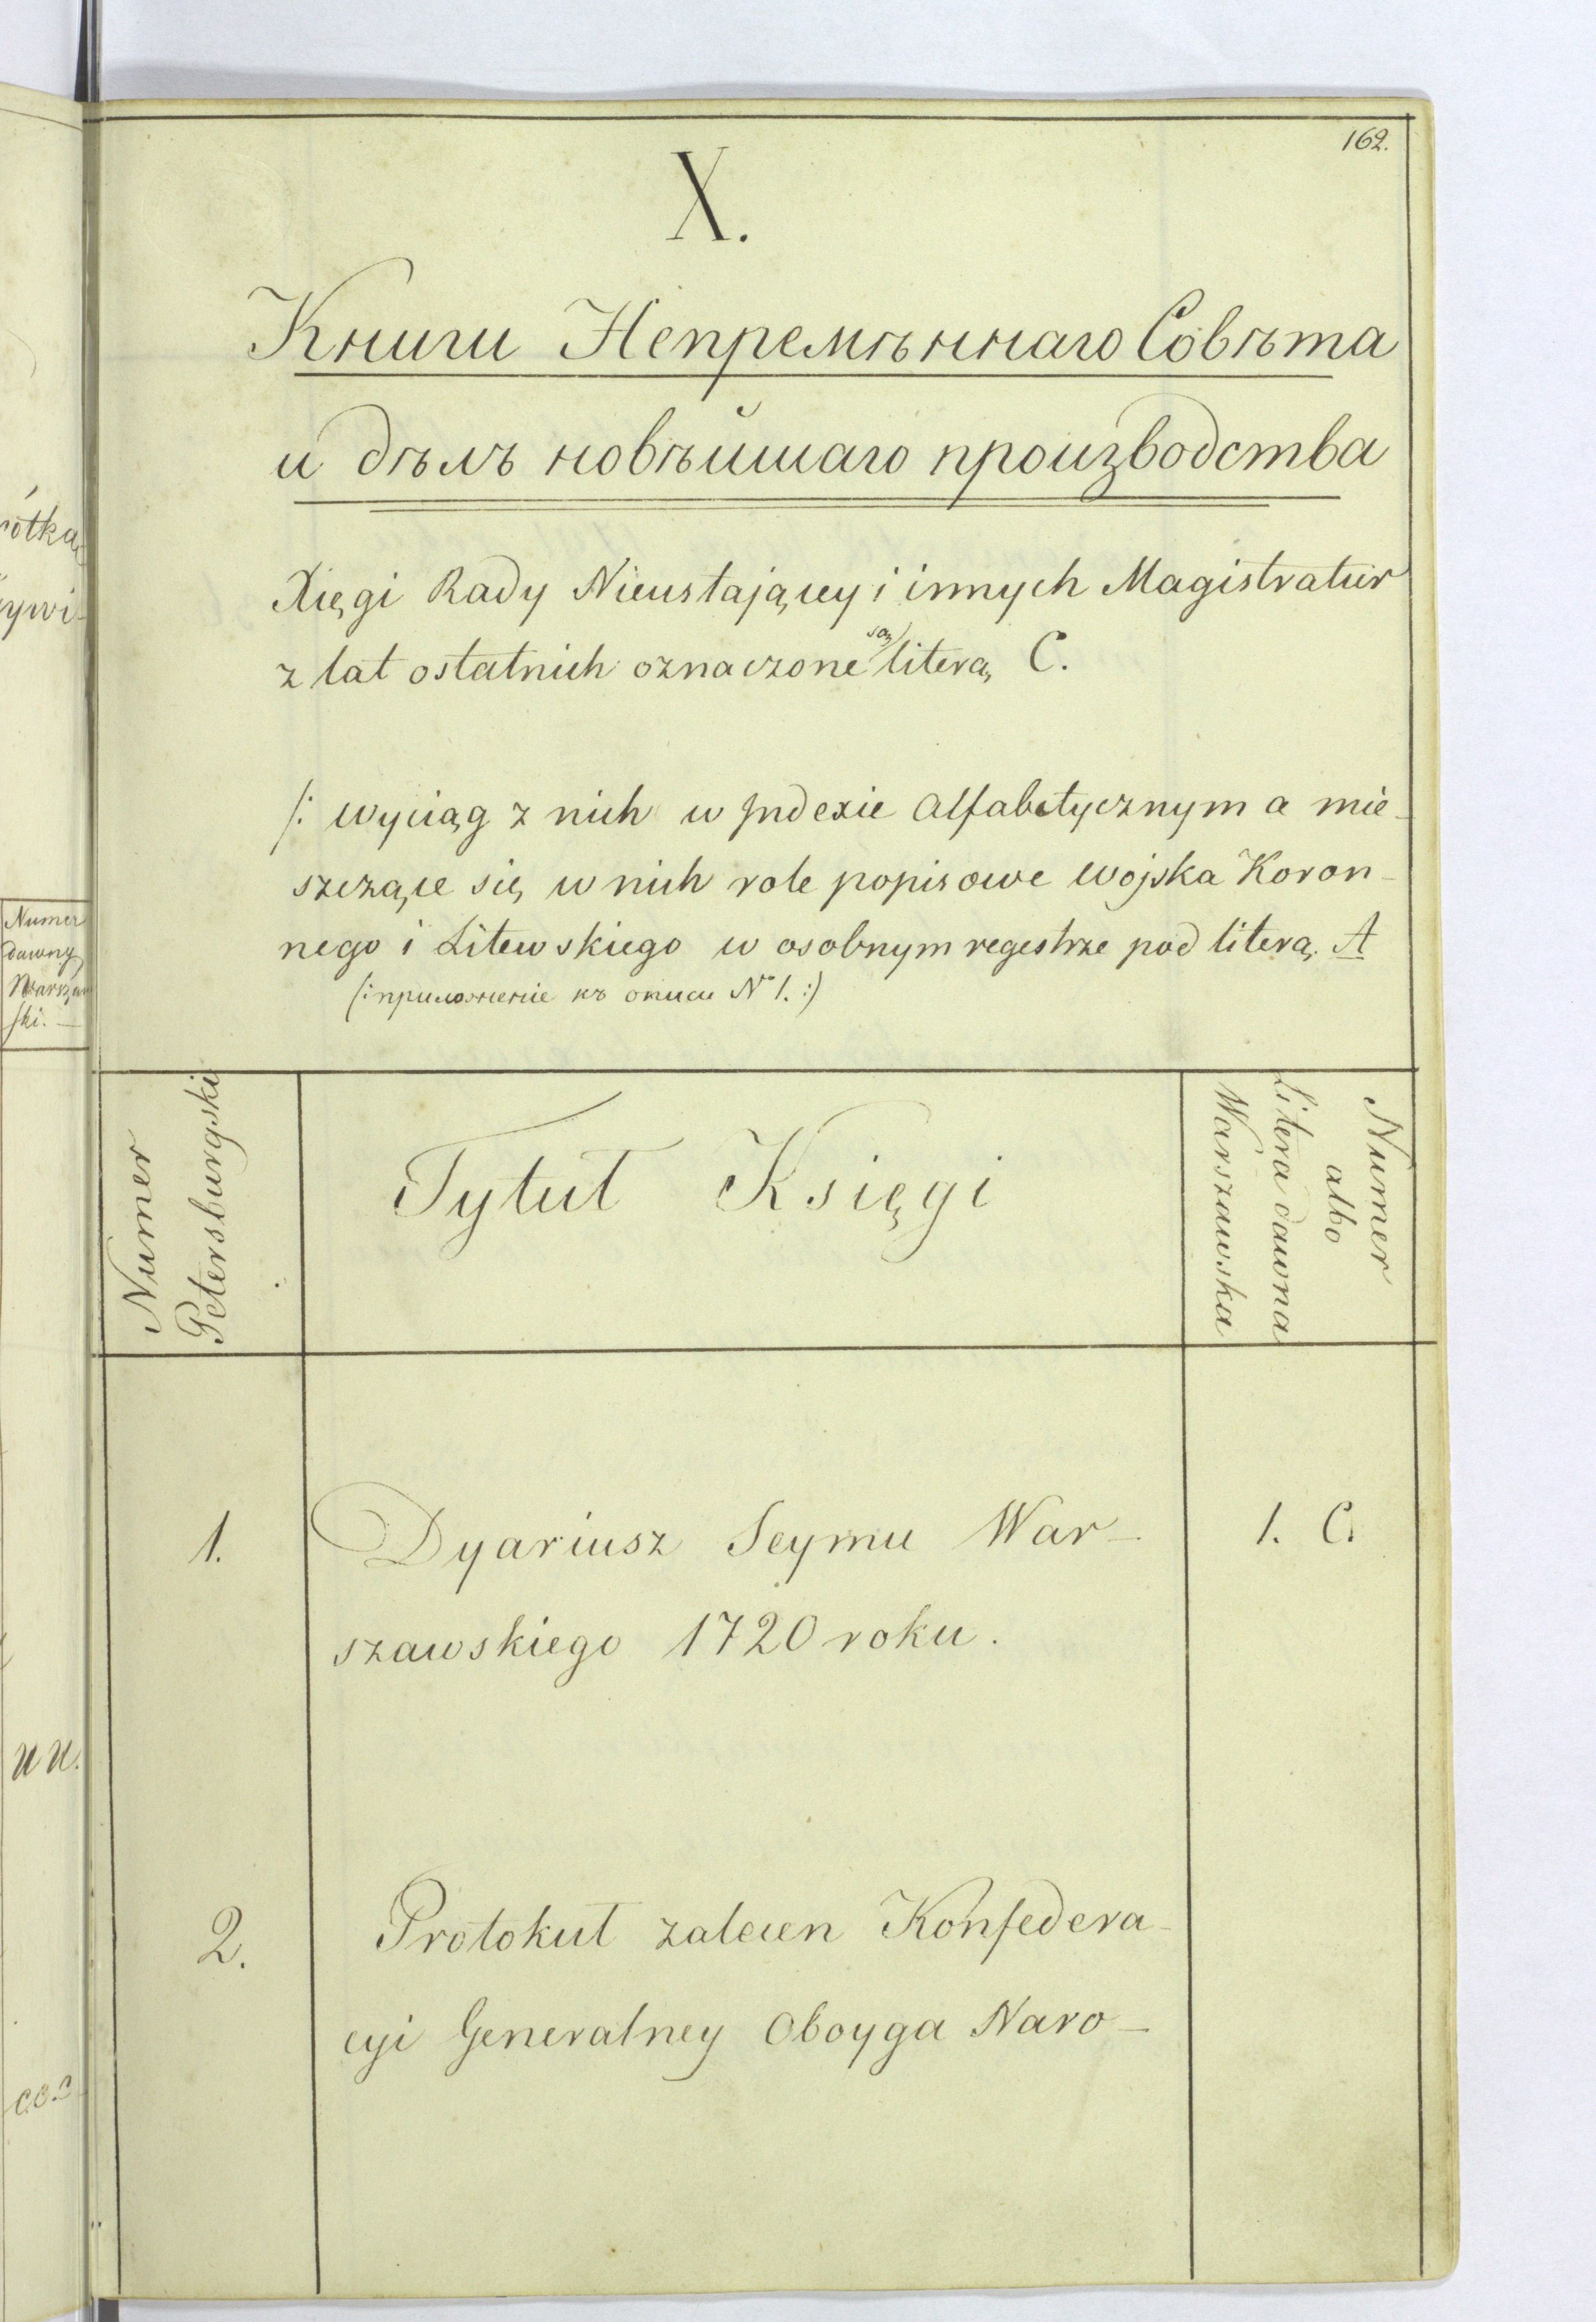 162.
X.
Книги Непремѣннаго Совѣта
и дѣлъ новѣйшаго производства
Xięgi Rady Nieustającey i innych Magistratur
z lat ostatnich oznaczone są literą C.
/: wyciąg z nich w Jndexie Alfabetycznym a mie-
szczące się w nich role popisowe wojska Koron-
nego i Litewskiego w osobnym regestrze pod literą A
(: приложеніе къ описи № 1. :)
Numer
Petersburgski
Tytuł Księgi
Numer
albo
Litera dawna
Warszawska
1. Dyariusz Seymu War- 1. C.
szawskiego 1720 roku.
2. Protokuł zaleceń Konfedera-
cyi Generalney Oboyga Naro-
ótką
ywi-
Numer
dawny
Warszaw
ski. —